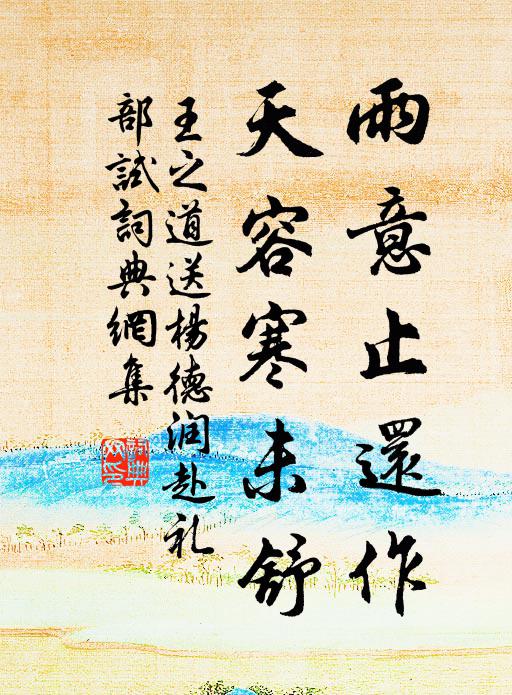 雨意止還作
天容寒未舒
王之道送楊德润赴礼
部試詞典網集